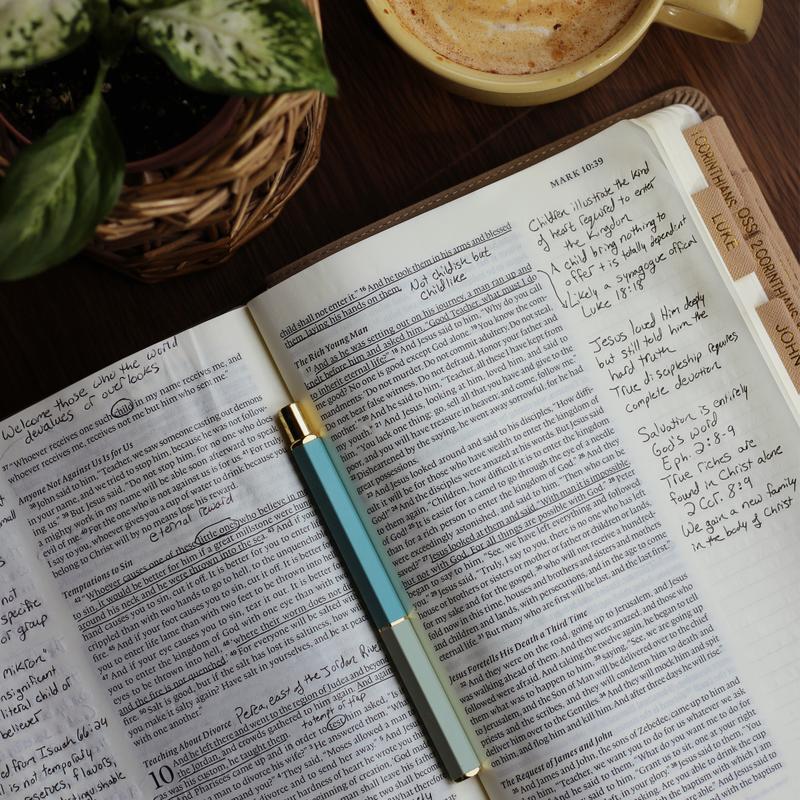 Welcome those who the world
devalues or overlooks
37 "Whoever receives one such child in my name receives me, and
whoever receives me, receives not me but him who sent me."
Anyone Not Against Us Is for Us
38 John said to him, "Teacher, we saw someone casting out demons
in your name, and we tried to stop him, because he was not follow-
ing us." 39 But Jesus said, "Do not stop him, for no one who does
a mighty work in my name will be able soon afterward to speak
evil of me. 40 For the one who is not against us is for us. 41 For truly,
I say to you, whoever gives you a cup of water to drink because you
belong to Christ will by no means lose his reward.
eternal reward
Temptations to Sin
42 "Whoever causes one of these little ones who believe in me
to sin, it would be better for him if a great millstone were hung
around his neck and he were thrown into the sea. 43 And if your
hand causes you to sin, cut it off. It is better for you to enter life
crippled than with two hands to go to hell, to the unquenchable
fire. 45 And if your foot causes you to sin, cut it off. It is better for
you to enter life lame than with two feet to be thrown into hell.
47 And if your eye causes you to sin, tear it out. It is better for
you to enter the kingdom of God with one eye than with two
eyes to be thrown into hell, 48 'where their worm does not die
and the fire is not quenched.' 49 For everyone will be salted with
fire. 50 Salt is good, but if the salt has lost its saltiness, how will
you make it salty again? Have salt in yourselves, and be at peace
with one another."
Perea, east of the Jordan River
Teaching About Divorce
10 And he left there and went to the region of Judea and beyond
the Jordan, and crowds gathered to him again. And again,
as was his custom, he taught them.
attempt at trap
not
specific
or group
"mikron"
insignificant
literal child or
believer
from Isaiah 66:24
is not temporary
MARK 10:39
child shall not enter it." 16 And he took them in his arms and blessed
them, laying his hands on them.
Not childish but
childlike
The Rich Young Man
17 And as he was setting out on his journey, a man ran up and
knelt before him and asked him, "Good Teacher, what must I do
to inherit eternal life?" 18 And Jesus said to him, "Why do you call
me good? No one is good except God alone. 19 You know the com-
mandments: 'Do not murder, Do not commit adultery, Do not steal,
Do not bear false witness, Do not defraud, Honor your father and
mother.'" 20 And he said to him, "Teacher, all these I have kept from
my youth." 21 And Jesus, looking at him, loved him, and said to him,
"You lack one thing: go, sell all that you have and give to the
poor, and you will have treasure in heaven; and come, follow me."
22 Disheartened by the saying, he went away sorrowful, for he had
great possessions.
23 And Jesus looked around and said to his disciples, "How diffi-
cult it will be for those who have wealth to enter the kingdom of
God!" 24 And the disciples were amazed at his words. But Jesus said
to them again, "Children, how difficult it is to enter the kingdom
of God! 25 It is easier for a camel to go through the eye of a needle
than for a rich person to enter the kingdom of God." 26 And they
were exceedingly astonished, and said to him, "Then who can be
saved?" 27 Jesus looked at them and said, "With man it is impossible,
but not with God. For all things are possible with God." 28 Peter
began to say to him, "See, we have left everything and followed
you." 29 Jesus said, "Truly, I say to you, there is no one who has left
house or brothers or sisters or mother or father or children or lands,
for my sake and for the gospel, 30 who will not receive a hundred-
fold now in this time, houses and brothers and sisters and mothers
and children and lands, with persecutions, and in the age to come
eternal life. 31 But many who are first will be last, and the last first."
Jesus Foretells His Death a Third Time
32 And they were on the road, going up to Jerusalem, and Jesus
was walking ahead of them. And they were amazed, and those who
followed were afraid. And taking the twelve again, he began to tell
them what was to happen to him, 33 saying, "See, we are going up
to Jerusalem, and the Son of Man will be delivered over to the chief
priests and the scribes, and they will condemn him to death and
deliver him over to the Gentiles. 34 And they will mock him and spit
on him, and flog him and kill him. And after three days he will rise."
The Request of James and John
35 And James and John, the sons of Zebedee, came up to him and
Children illustrate the kind
of heart required to enter
the Kingdom
A child bring nothing to
offer + is totally dependent
Likely a synagogue official
Luke 18:18
Jesus loved Him deeply
but still told him the
hard truth
True discipleship requires
complete devotion
Salvation is entirely
God's word
Eph. 2:8-9
True riches are
found in Christ alone
2 Cor. 8:9
We gain a new family
in the body of Christ
1 CORINTHIANS
LUKE
2 CORINTHIANS
JOHN